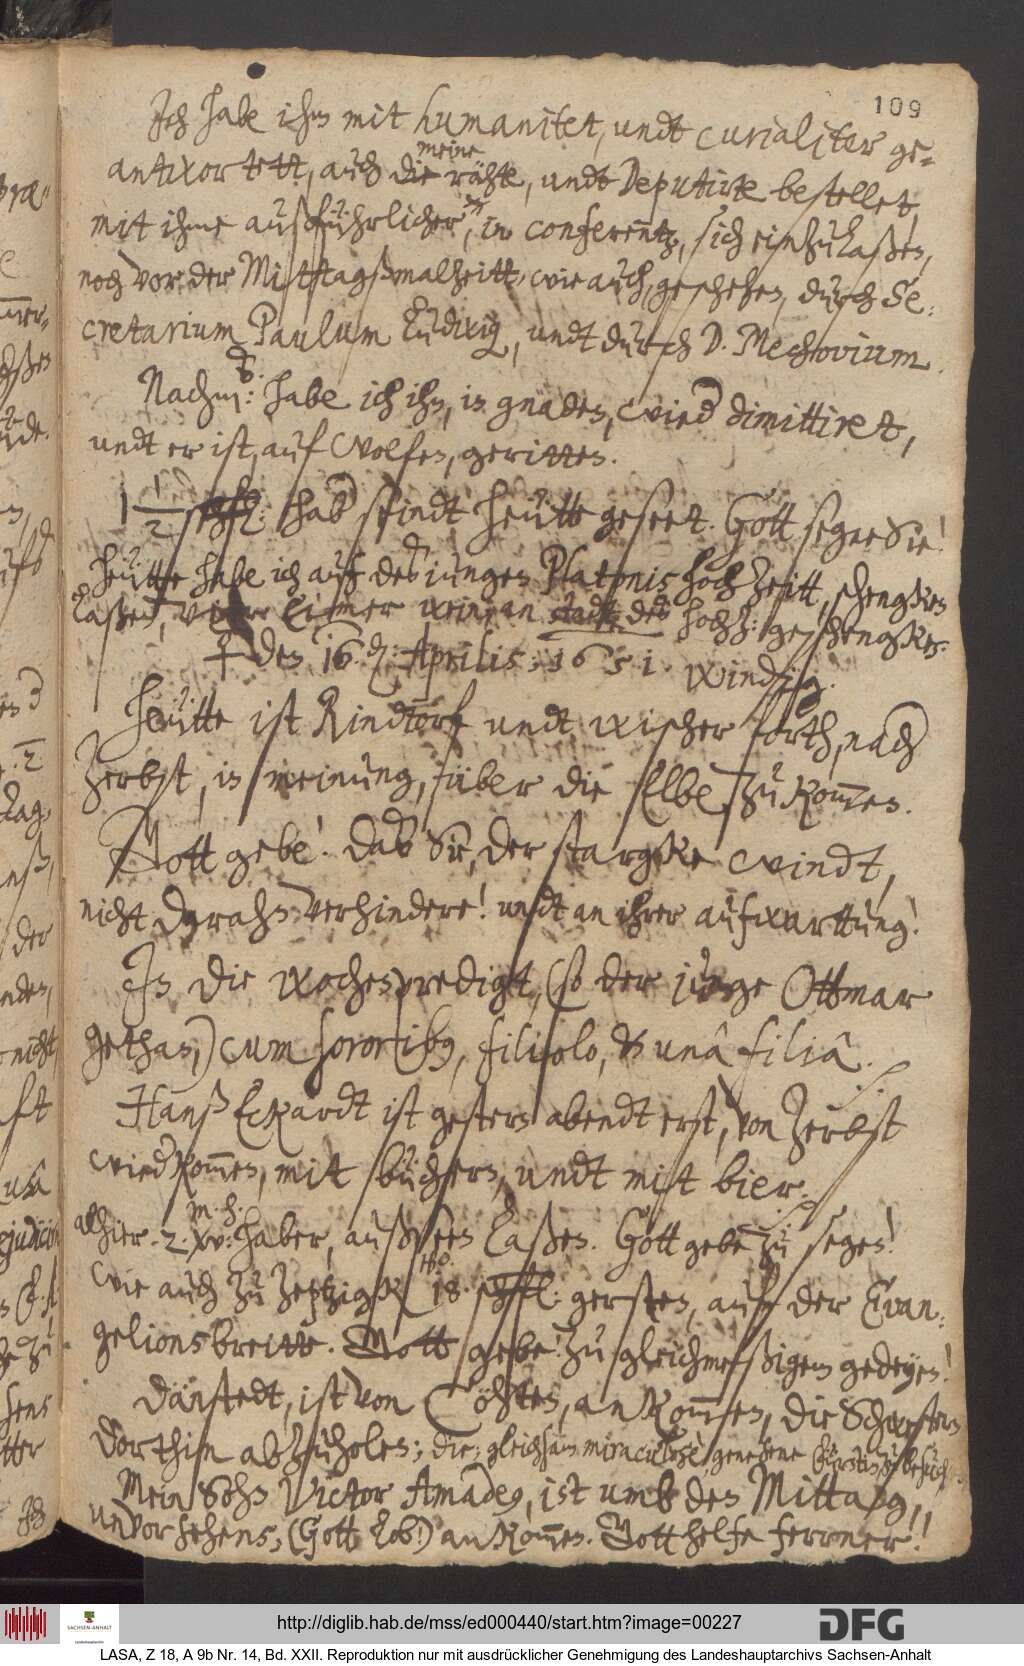 109
Ich habe ihm mit humanitet, undt curialiter ge-
antwortett, auch die meine rähte, undt Deputirte bestellet,
mit ihme außführlicher, in conferentz, sich einzulaßen,
noch vor der Mittagßmalzeitt, wie auch, geschehen, durch Se:
cretarium Paulum Ludwig, undt durch D. Mechovium.
Nachm: habe ich ihn, in gnaden, wied dimittiret,
undt er ist, auf Wolfen, geritten.
1 1/2 schfl: hab seindt heütte geseet. Gott segne Sie!
Heütte habe ich auf des iungen Platonis hochzeitt, schengken
laßen, Eimer wein, an stadt des hochz: geschengkes.
den 16. Aprilis; 1651. windig.
Heütte ist Rindtorf undt wischer forth, nach
Zerbst, in meinung, über die Elbe, zu kommen.
Gott gebe! daß Sie, der stargke windt,
nicht daran verhindere! undt an ihrer aufwarttung!
In die wochenpredigt, (so der junge Ottmar
gethan,) cum sororibus, filiolo, & unâ filiâ.
Hanß Eckardt ist gestern abendt erst, von Zerbst
wied kommen, mit büchsen, undt mit bier.
Alhier 2. w: m. h. haber, außseen laßen. Gott gebe zu segen!
wie auch zu Zeptzigk 18. schfl: gersten, auf der Evan:
gelionsbreitte. Gott gebe! zu gleichmeßigem gedeyen!
Dänstedt, ist von Cöhten, an kommen, die Schwestern
dorthin abzuholen; die; gleichsam miraculosè, genesene Fürstin, zu besuchen.
Mein Sohn Victor Amadeus, ist umb den Mittag,
unvorsehens, (Gott lob!) an kommen. Gott helfe ferrner!
http://diglib.hab.de/mss/ed000440/start.htm?image=00227
SACHSEN-ANHALT
DFG
LASA, Z 18, A 9b Nr. 14, Bd. XXII. Reproduktion nur mit ausdrücklicher Genehmigung des Landeshauptarchivs Sachsen-Anhalt